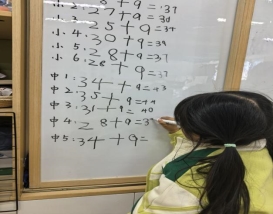 8+9=37
小2.27+9=36
小3.25+9=34
小4.30+9=39
小5.28+9=37
小6.28+9=37
中1:34+9=43
中2:35+9=44
中3:31+9=40
中4:28+9=3
中5:34+9=